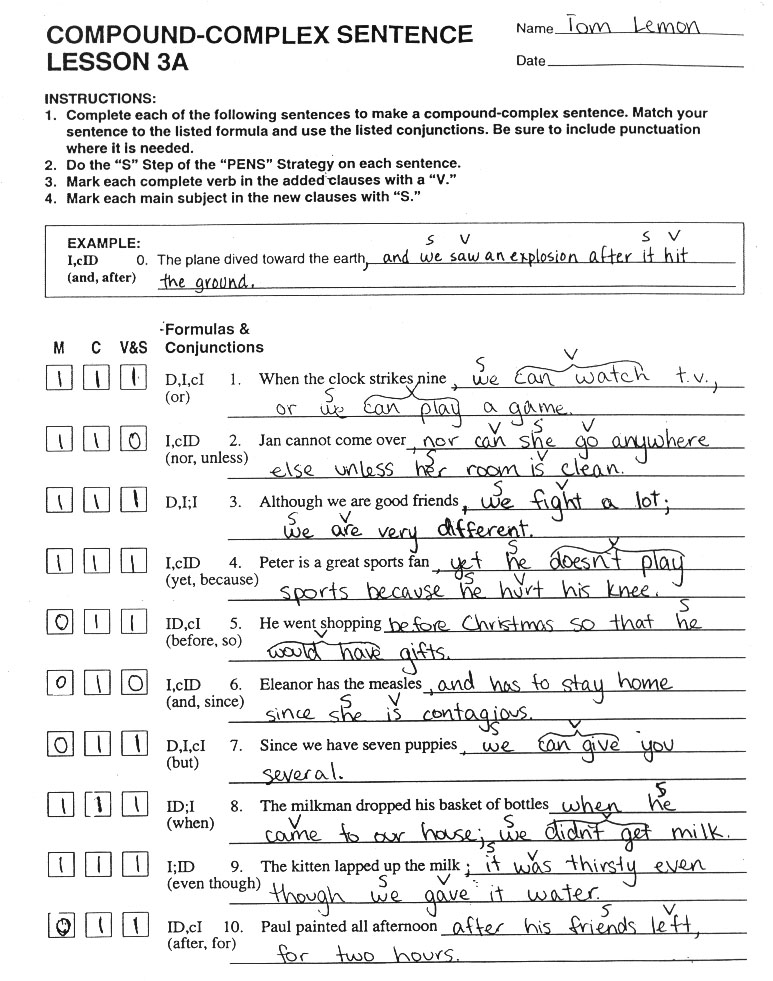 COMPOUND-COMPLEX SENTENCE
LESSON 3A
Name Tom Lemon
Date
INSTRUCTIONS:
1. Complete each of the following sentences to make a compound-complex sentence. Match your
sentence to the listed formula and use the listed conjunctions. Be sure to include punctuation
where it is needed.
2. Do the “S” Step of the “PENS” Strategy on each sentence.
3. Mark each complete verb in the added clauses with a “V.”
4. Mark each main subject in the new clauses with “S.”
EXAMPLE:
S V S V
I,cID 0. The plane dived toward the earth, and we saw an explosion after it hit
(and, after) the ground.
Formulas &
M C V&S Conjunctions
S V
1 1 1 D,I,cI 1. When the clock strikes nine, we can watch t.v.,
S V
(or) or we can play a game.
V S V
1 1 0 I,cID 2. Jan cannot come over, nor can she go anywhere
S V
(nor, unless) else unless her room is clean.
S V
1 1 1 D,I;I 3. Although we are good friends, we fight a lot;
S V
we are very different.
S V
1 1 1 I,cID 4. Peter is a great sports fan, yet he doesn't play
S V
(yet, because) sports because he hurt his knee.
S
0 1 1 ID,cI 5. He went shopping before Christmas so that he
V
(before, so) would have gifts.
0 1 0 I,cID 6. Eleanor has the measles, and has to stay home
S V
(and, since) since she is contagious.
S V
0 1 1 D,I,cI 7. Since we have seven puppies, we can give you
(but) several.
S
1 1 1 ID;I 8. The milkman dropped his basket of bottles when he
V S V
(when) came to our house; we didn't get milk.
S V
1 1 1 I;ID 9. The kitten lapped up the milk; it was thirsty even
S V
(even though) though we gave it water.
S V
0 1 1 ID,cI 10. Paul painted all afternoon after his friends left,
(after, for) for two hours.